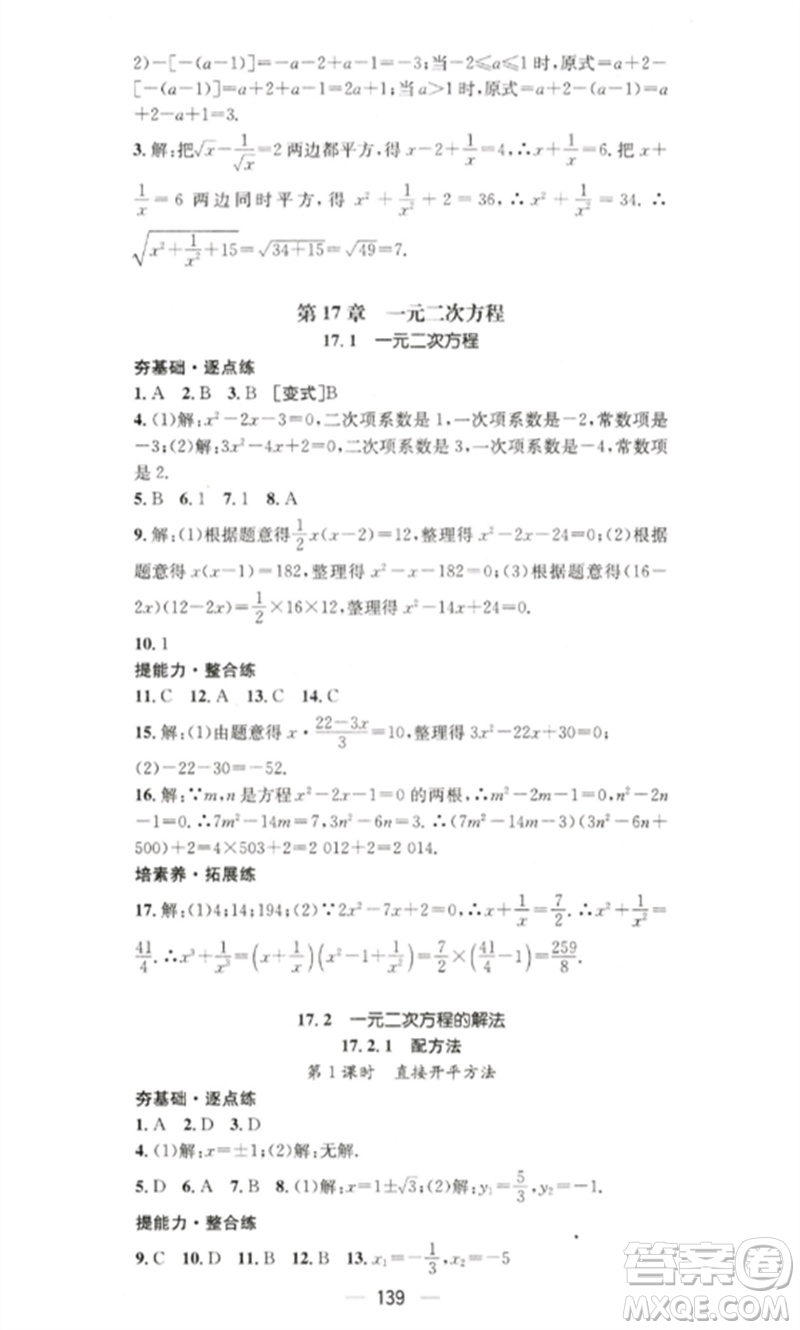 2)-[-(a-1)]=-a-2+a-1=-3;当-2≤a≤1时,原式=a+2-
[-(a-1)]=a+2+a-1=2a+1;当a>1时,原式=a+2-(a-1)=a
+2-a+1=3.
3.解:把√x-1/√x=2两边都平方,得x-2+1/x=4,∴x+1/x=6.把x+
1/x=6两边同时平方,得x²+1/x²+2=36,∴x²+1/x²=34.∴
√(x²+1/x²+15)=√(34+15)=√49=7.
第17章 一元二次方程
17.1 一元二次方程
夯基础·逐点练
1.A 2.B 3.B [变式]B
4.(1)解:x²-2x-3=0,二次项系数是1,一次项系数是-2,常数项是
-3;(2)解:3x²-4x+2=0,二次项系数是3,一次项系数是-4,常数项
是2.
5.B 6.1 7.1 8.A
9.解:(1)根据题意得1/2x(x-2)=12,整理得x²-2x-24=0;(2)根据
题意得x(x-1)=182,整理得x²-x-182=0;(3)根据题意得(16-
2x)(12-2x)=1/2×16×12,整理得x²-14x+24=0.
10.1
提能力·整合练
11.C 12.A 13.C 14.C
15.解:(1)由题意得x·(22-3x)/3=10,整理得3x²-22x+30=0;
(2)-22-30=-52.
16.解:∵m,n是方程x²-2x-1=0的两根,∴m²-2m-1=0,n²-2n
-1=0.∴7m²-14m=7,3n²-6n=3.∴(7m²-14m-3)(3n²-6n+
500)+2=4×503+2=2 012+2=2 014.
培素养·拓展练
17.解:(1)4;14;194;(2)∵2x²-7x+2=0,∴x+1/x=7/2.∴x²+1/x²=
41/4.∴x³+1/x³=(x+1/x)(x²-1+1/x²)=7/2×(41/4-1)=259/8.
17.2 一元二次方程的解法
17.2.1 配方法
第1课时 直接开平方法
夯基础·逐点练
1.A 2.D 3.D
4.(1)解:x=±1;(2)解:无解.
5.D 6.A 7.B 8.(1)解:x=1±√3;(2)解:y₁=5/3,y₂=-1.
提能力·整合练
9.C 10.D 11.B 12.B 13.x₁=-1/3,x₂=-5
139
答案圈
MXQE.COM